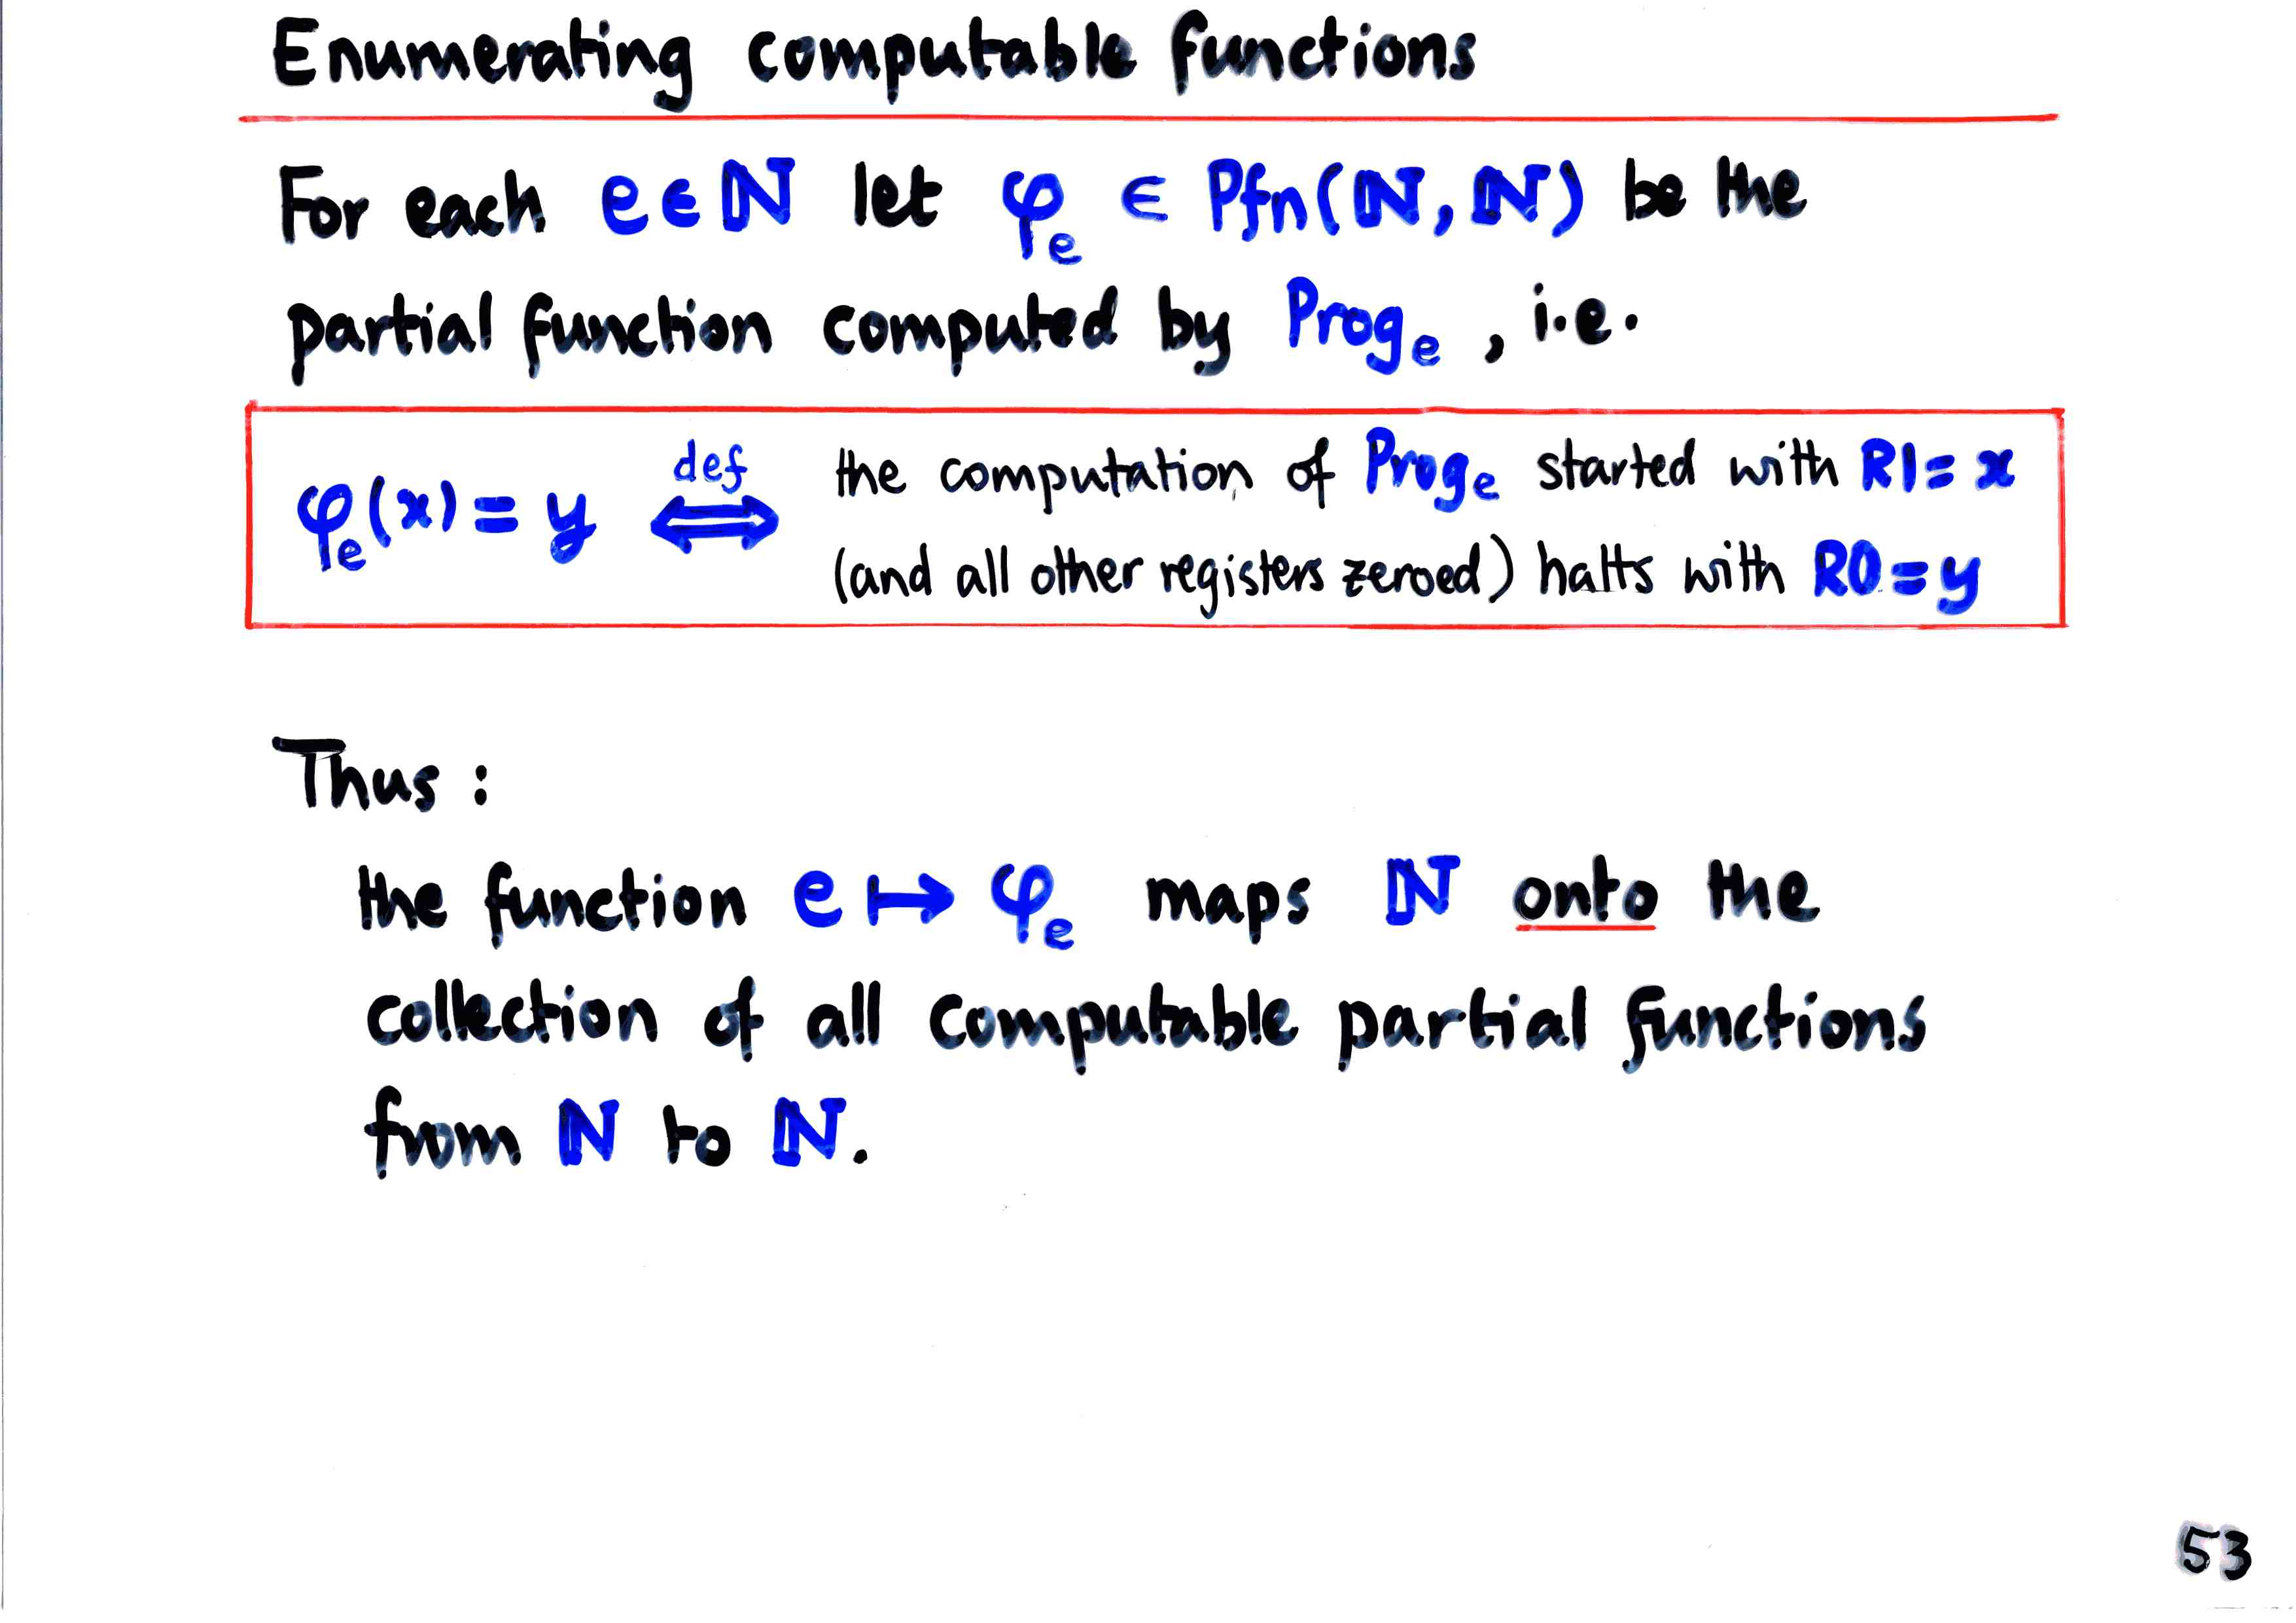 Enumerating computable functions
For each e ∈ ℕ let φₑ ∈ Pfn(ℕ, ℕ) be the
partial function computed by Progₑ, i.e.
φₑ(x) = y ⇔ def the computation of Progₑ started with R1 = x
(and all other registers zeroed) halts with R0 = y
Thus :
the function e ↦ φₑ maps ℕ onto the
collection of all computable partial functions
from ℕ to ℕ.
53